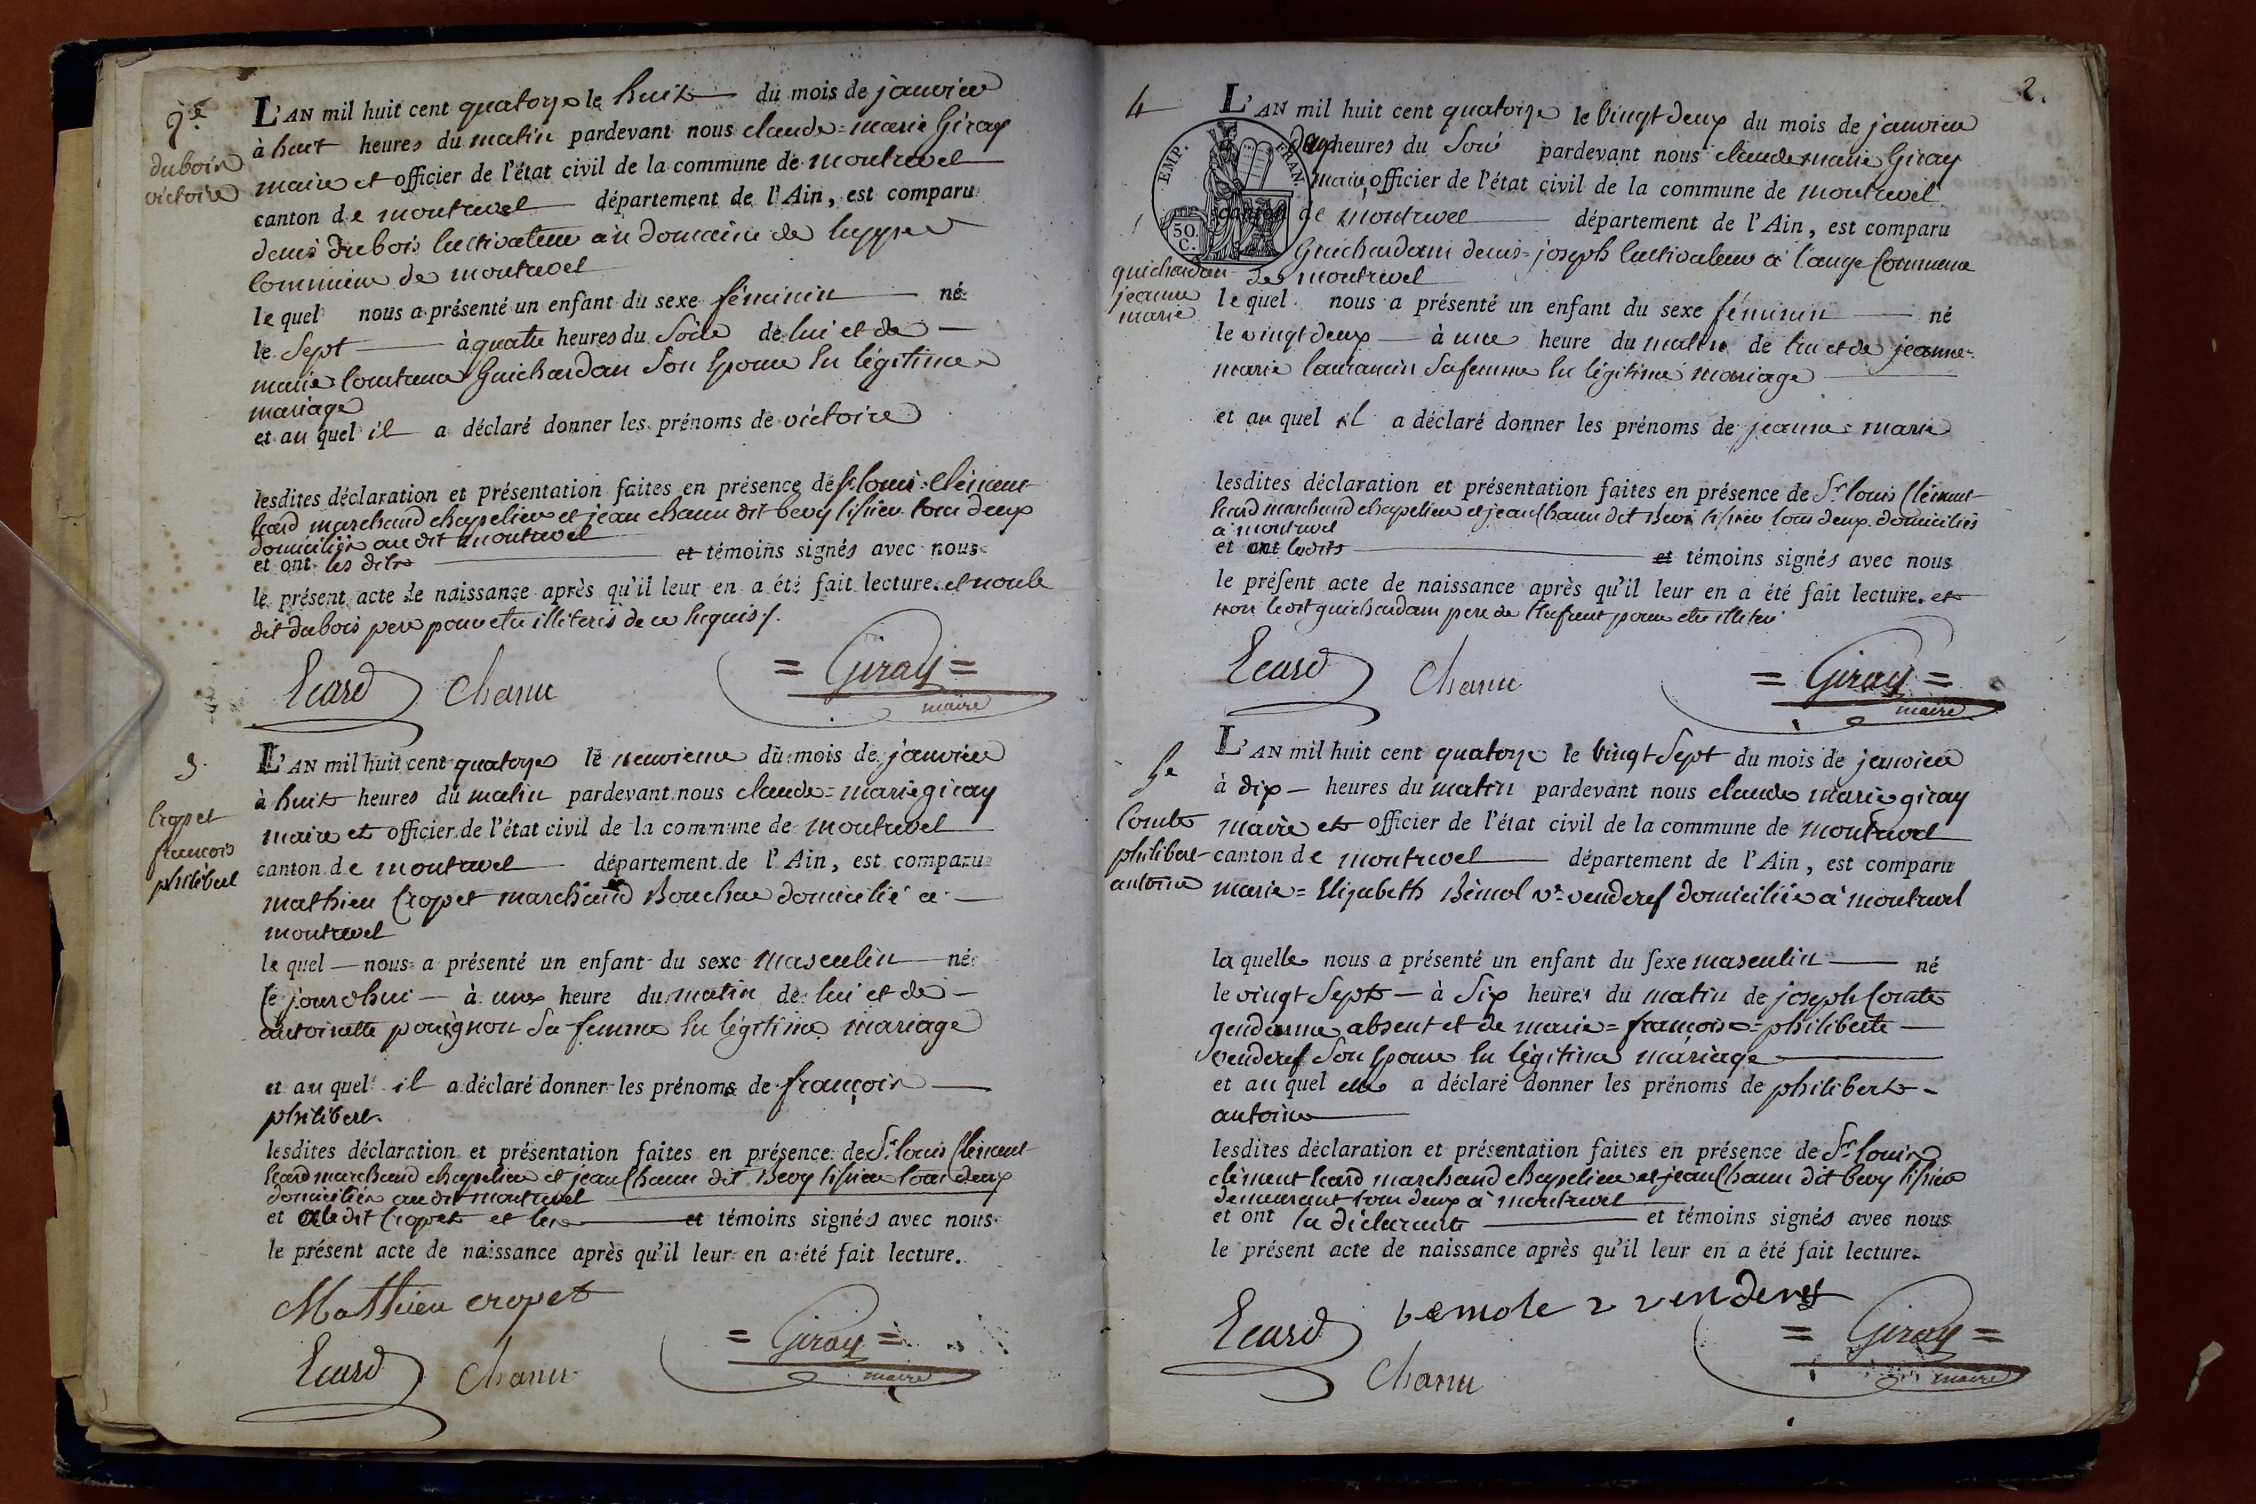 2.e
dubois
victoire
L'AN mil huit cent quatorze le huit du mois de janvier
à huit heures du matin pardevant nous claude=marie Giray
maire et officier de l'état civil de la commune de montrevel
canton de montrevel département de l'Ain, est comparu
denis dubois cultivateur au domaine de
commune de montrevel
le quel nous a présenté un enfant du sexe féminin né
le sept à quatre heures du soir de lui et de
marie Guichardan son épouse en légitime
mariage
et au quel il a déclaré donner les prénoms de victoire
lesdites déclaration et présentation faites en présence de Sr. louis Clément
Ecard marchand chapelier et jean chanu dit bevy tous deux
domiciliés au dit montrevel
et ont les dits et témoins signés avec nous
le présent acte de naissance après qu'il leur en a été fait lecture. et non le
dit dubois pere pour etre illiteré de ce requis
Ecard Chanu = Giray =
maire
3.
Cropet
françois
philibert
L'AN mil huit cent quatorze le neuvieme du mois de janvier
à huit heures du matin pardevant nous claude=marie giray
maire et officier de l'état civil de la commune de montrevel
canton de montrevel département de l'Ain, est comparu
mathieu Cropet marchand Boucher domicilié a
montrevel
le quel nous a présenté un enfant du sexe masculin né
le jourdhui à une heure du matin de lui et de
antoinette pouignon sa femme en légitime mariage
et au quel il a déclaré donner les prénoms de françois
philibert
lesdites déclaration et présentation faites en présence de Sr. louis Clément
Ecard marchand chapelier et jean Chanu dit Bevy tous deux
domiciliés au dit montrevel
et ont ledit Cropet et les et témoins signés avec nous
le présent acte de naissance après qu'il leur en a été fait lecture.
Mathieu cropet
Ecard Chanu = Giray =
maire
2.
4
guichardan
jeanne
marie
EMP. FRAN.
50
C.
L'AN mil huit cent quatorze le vingt deux du mois de janvier
deux heures du soir pardevant nous claude marie Giray
maire officier de l'état civil de la commune de montrevel
canton de montrevel département de l'Ain, est comparu
Guichardan denis=joseph cultivateur à Commune
de montrevel
le quel nous a présenté un enfant du sexe féminin né
le vingt deux à une heure du matin de lui et de jeanne=
marie sa femme en légitime mariage
et au quel il a déclaré donner les prénoms de jeanne=marie
lesdites déclaration et présentation faites en présence de Sr. louis Clément
Ecard marchand chapelier et jean Chanu dit Bevi tous deux domiciliés
à montrevel
et ont lesdits et témoins signés avec nous
le présent acte de naissance après qu'il leur en a été fait lecture. et
non ledit guichardan pere de l'enfant pour etre illiteré
Ecard Chanu = Giray =
maire
5e
Comte
philibert
antoine
L'AN mil huit cent quatorze le vingt sept du mois de janvier
à dix heures du matin pardevant nous claude marie giray
maire et officier de l'état civil de la commune de montrevel
canton de montrevel département de l'Ain, est comparu
marie=Elizabeth Bémol ve venderef domiciliée à montrevel
la quelle nous a présenté un enfant du sexe masculin né
le vingt sept à six heures du matin de joseph Comte
gendarme absent et de marie=françoise=philiberte
venderef son épouse en légitime mariage
et au quel elle a déclaré donner les prénoms de philibert
antoine
lesdites déclaration et présentation faites en présence de Sr. louis
clément Ecard marchand chapelier et jean Chanu dit bevy
demeurant tous deux à montrevel
et ont la déclarante et témoins signés avec nous
le présent acte de naissance après qu'il leur en a été fait lecture.
Ecard bemole v venderef = Giray =
Chanu maire